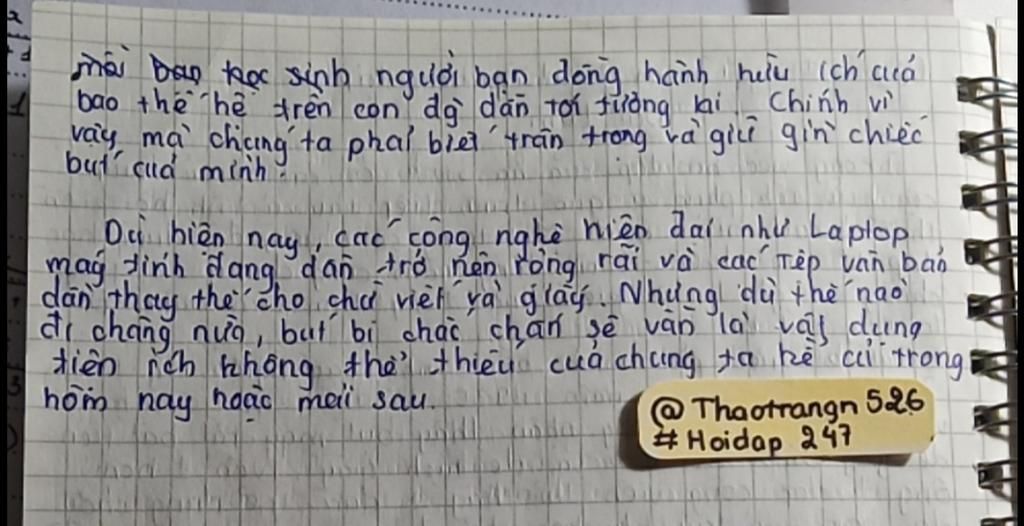 mỗi bạn học sinh người bạn đồng hành hữu ích của
bao thế hệ trên con đg dẫn tới tương lai. Chính vì
vậy mà chúng ta phải biết trân trọng và giữ gìn chiếc
bút của mình.
Dù hiện nay, các công nghệ hiện đại như Laptop
mạg tính đang dần trở nên rộng rãi và các Tệp văn bản
dần thay thế cho chữ viết và giấy. Nhưng dù thế nào
đi chăng nữa, bút bi chắc chắn sẽ vẫn là vật dụng
tiện ích không thể thiếu của chúng ta kể cả trong
hôm nay hoặc mai sau.
@ Thaotrangn 526
# Hoidap 247